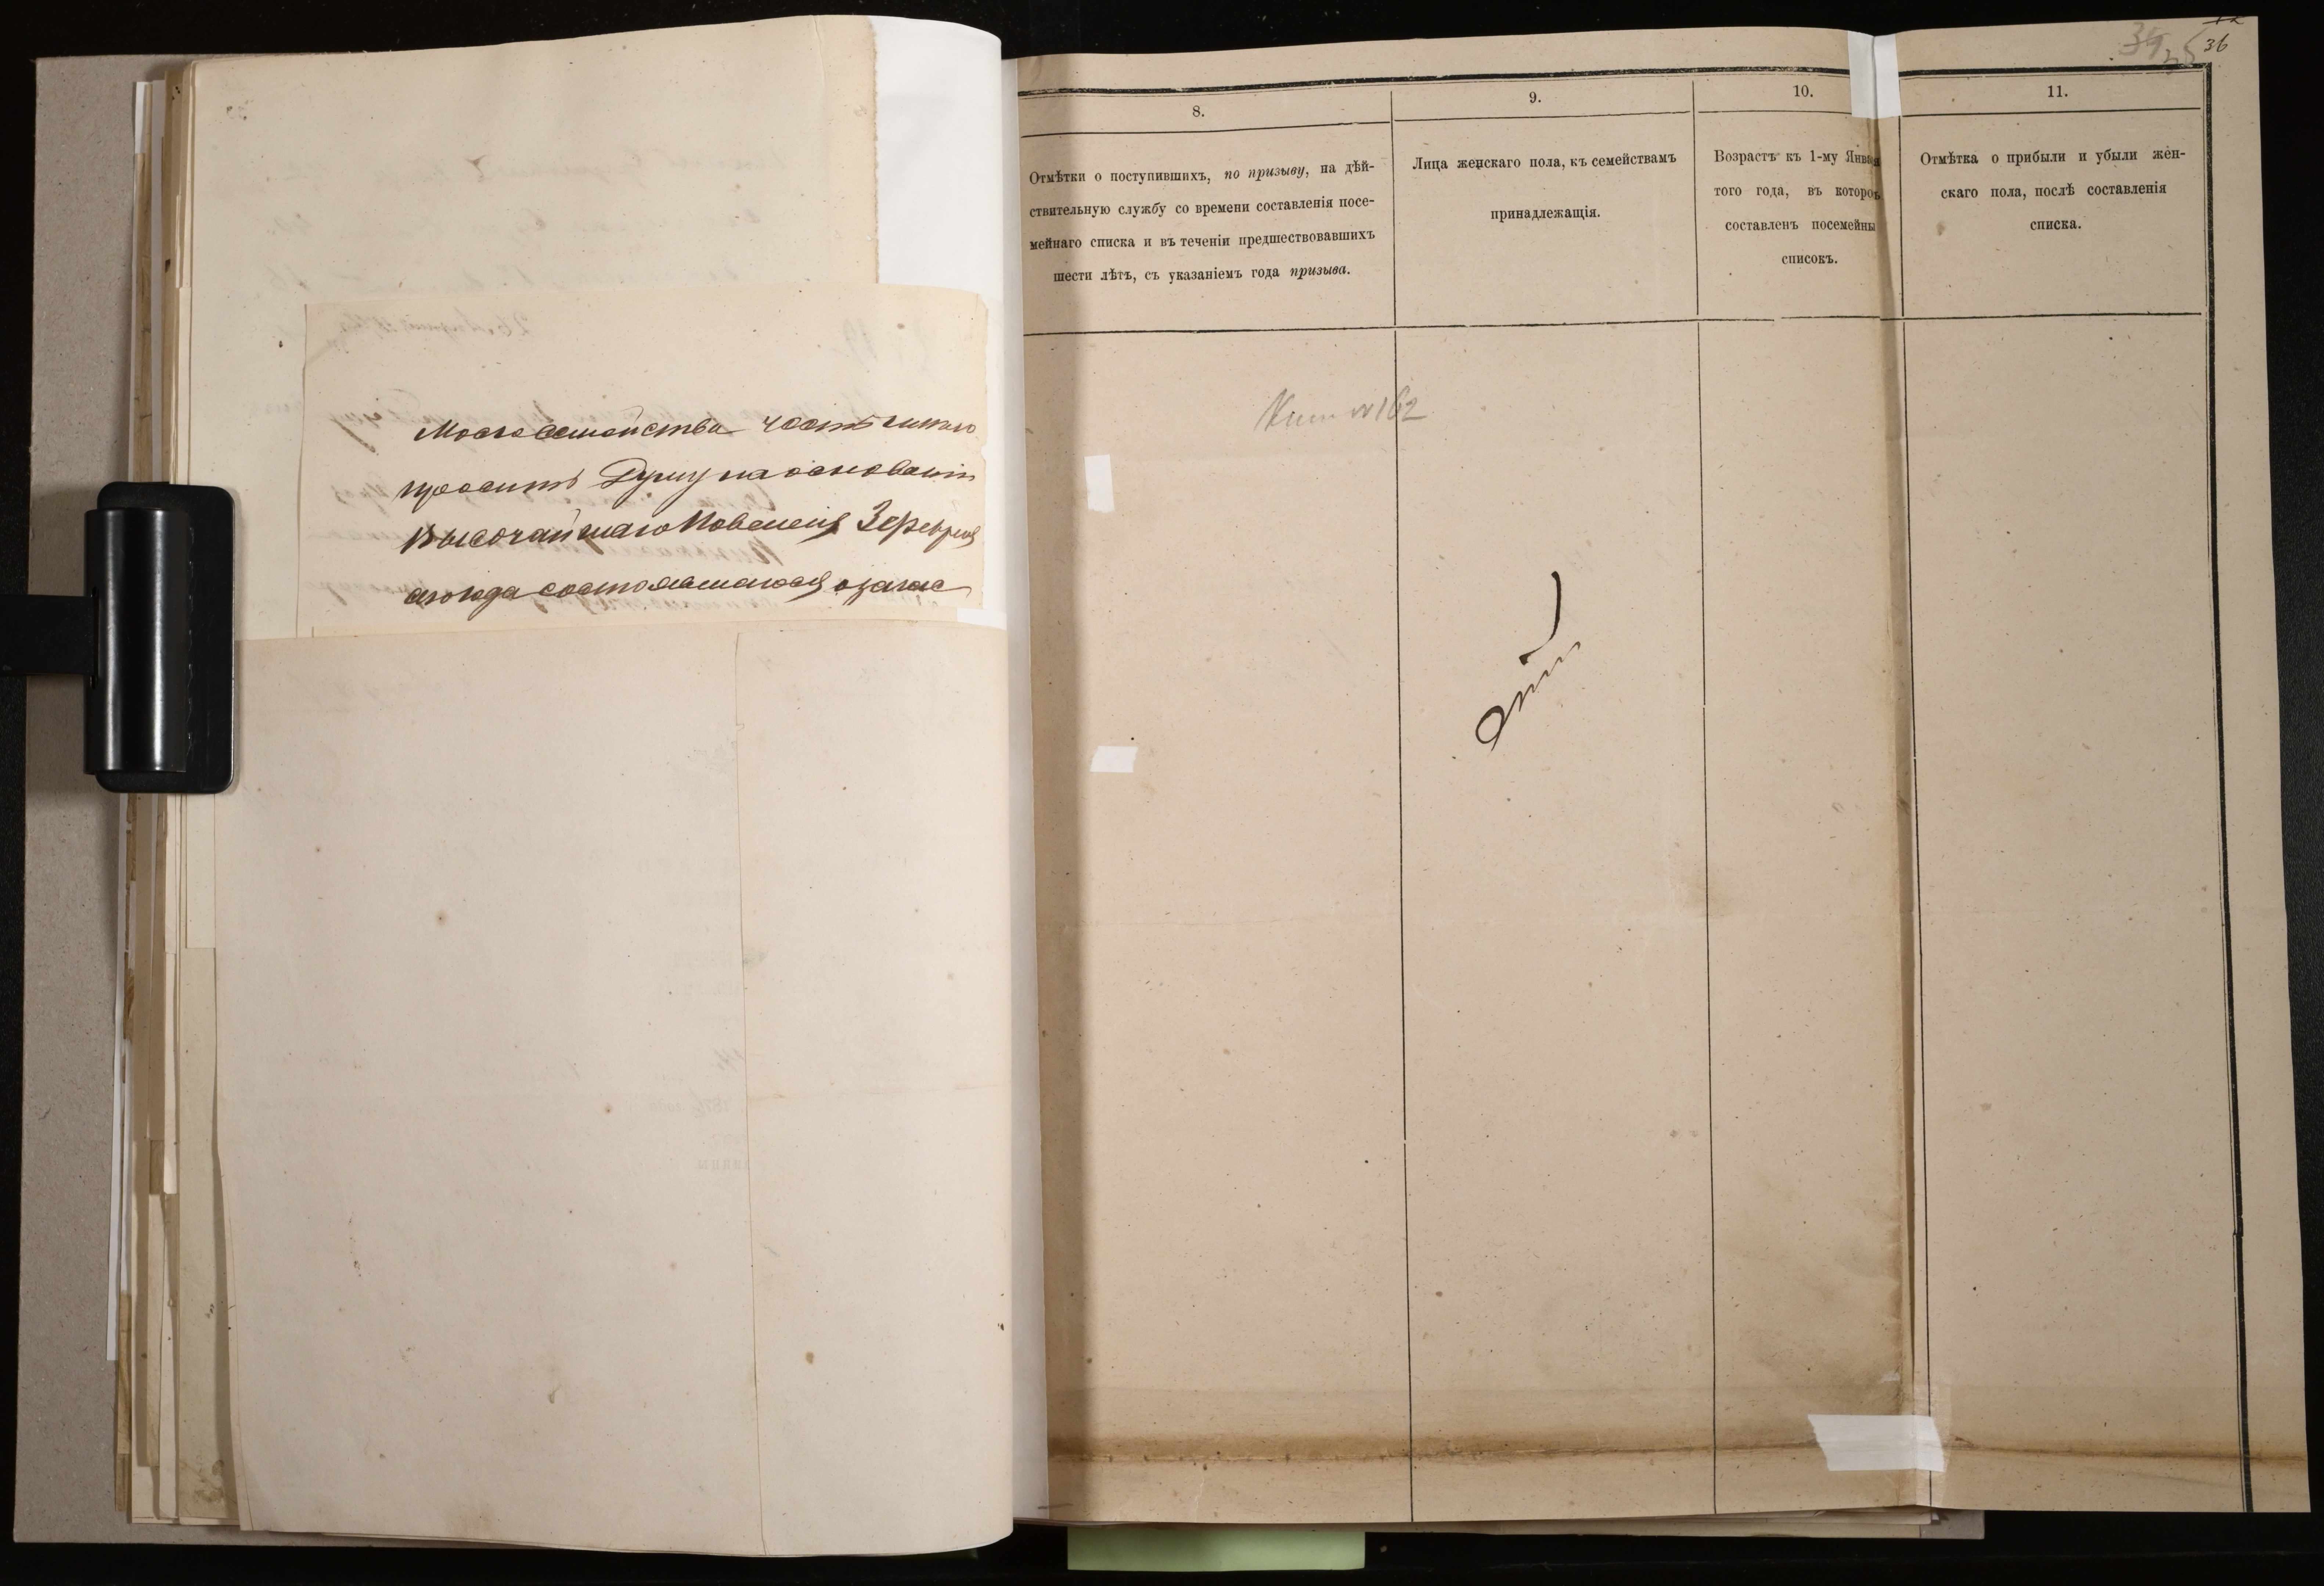 Моего семейства честь имею
просить Думу на основании
Высочайшаго Повеления 3 февраля
сего года состоявшагося о запас
36
8.
Отмѣтки о поступившихъ, по призыву, на дѣй-
ствительную службу со времени составленія посе-
мейнаго списка и въ теченіи предшествовавшихъ
шести лѣтъ, съ указаніемъ года призыва.
9.
Лица женскаго пола, къ семействамъ
принадлежащія.
10.
Возрастъ къ 1-му Января
того года, въ которо
составленъ посемейны
списокъ.
11.
Отмѣтка о прибыли и убыли жен-
скаго пола, послѣ составленія
списка.
№ 162